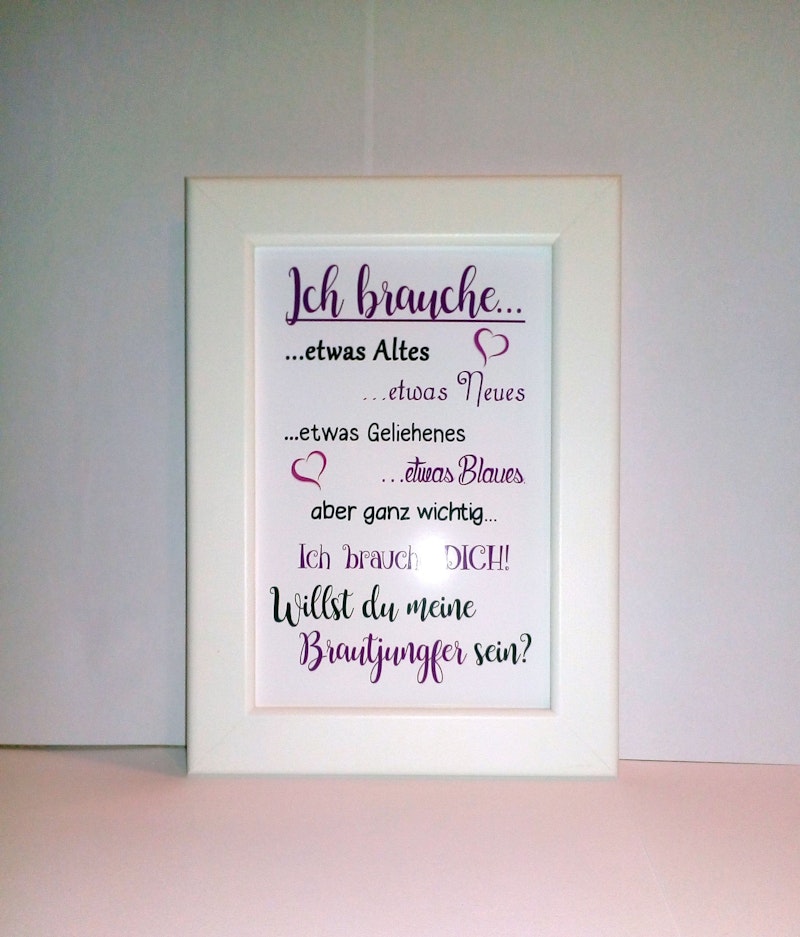 Ich brauche...
...etwas Altes
...etwas Neues
...etwas Geliehenes
...etwas Blaues
aber ganz wichtig...
Ich brauche DICH!
Willst du meine
Brautjungfer sein?